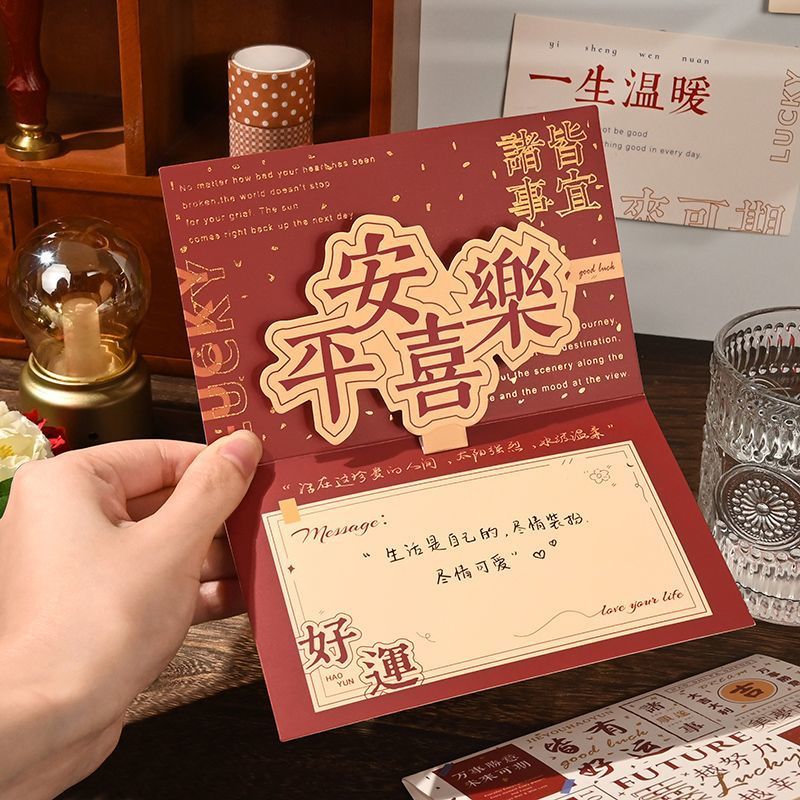 yi sheng wen nuan
一生温暖
not be good
thing good in every day.
LUCKY
來可期
No matter how bad your heart has been
broken,the world doesn't stop
for your grief. The sun
comes right back up the next day
諸事
皆宜
LUCKY
good luck
平安喜樂
journey
destination.
out the scenery along the
e and the mood at the view
“活在这珍贵的人间，太阳强烈，水波温柔”
Message:
“生活是自己的，尽情装扮.
尽情可爱”
love your life
好運
HAO
YUN
皆有
good luck
好运
FUTURE
万事勝意
未來可期
吉
越努力
Lucky
越幸